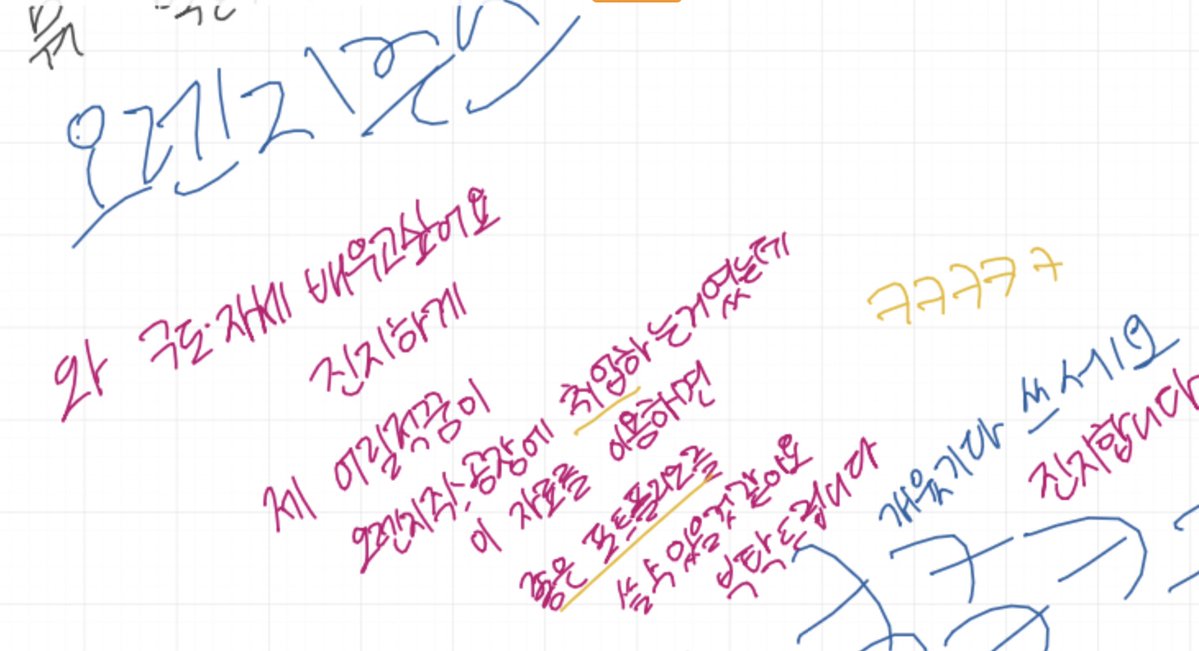 오진지존
와 구도 자체 배우고싶어요
진지하게
제 어릴적꿈이
오진지작 공장에 취업하는거였는데
이 자료를 이용하면
좋은 포트폴리오를
쓸수있을것같아요
부탁드립니다
ㅋㅋㅋㅋㅋ
개웃기다
쓰세요
진지합니다
ㅋㅋㅋ